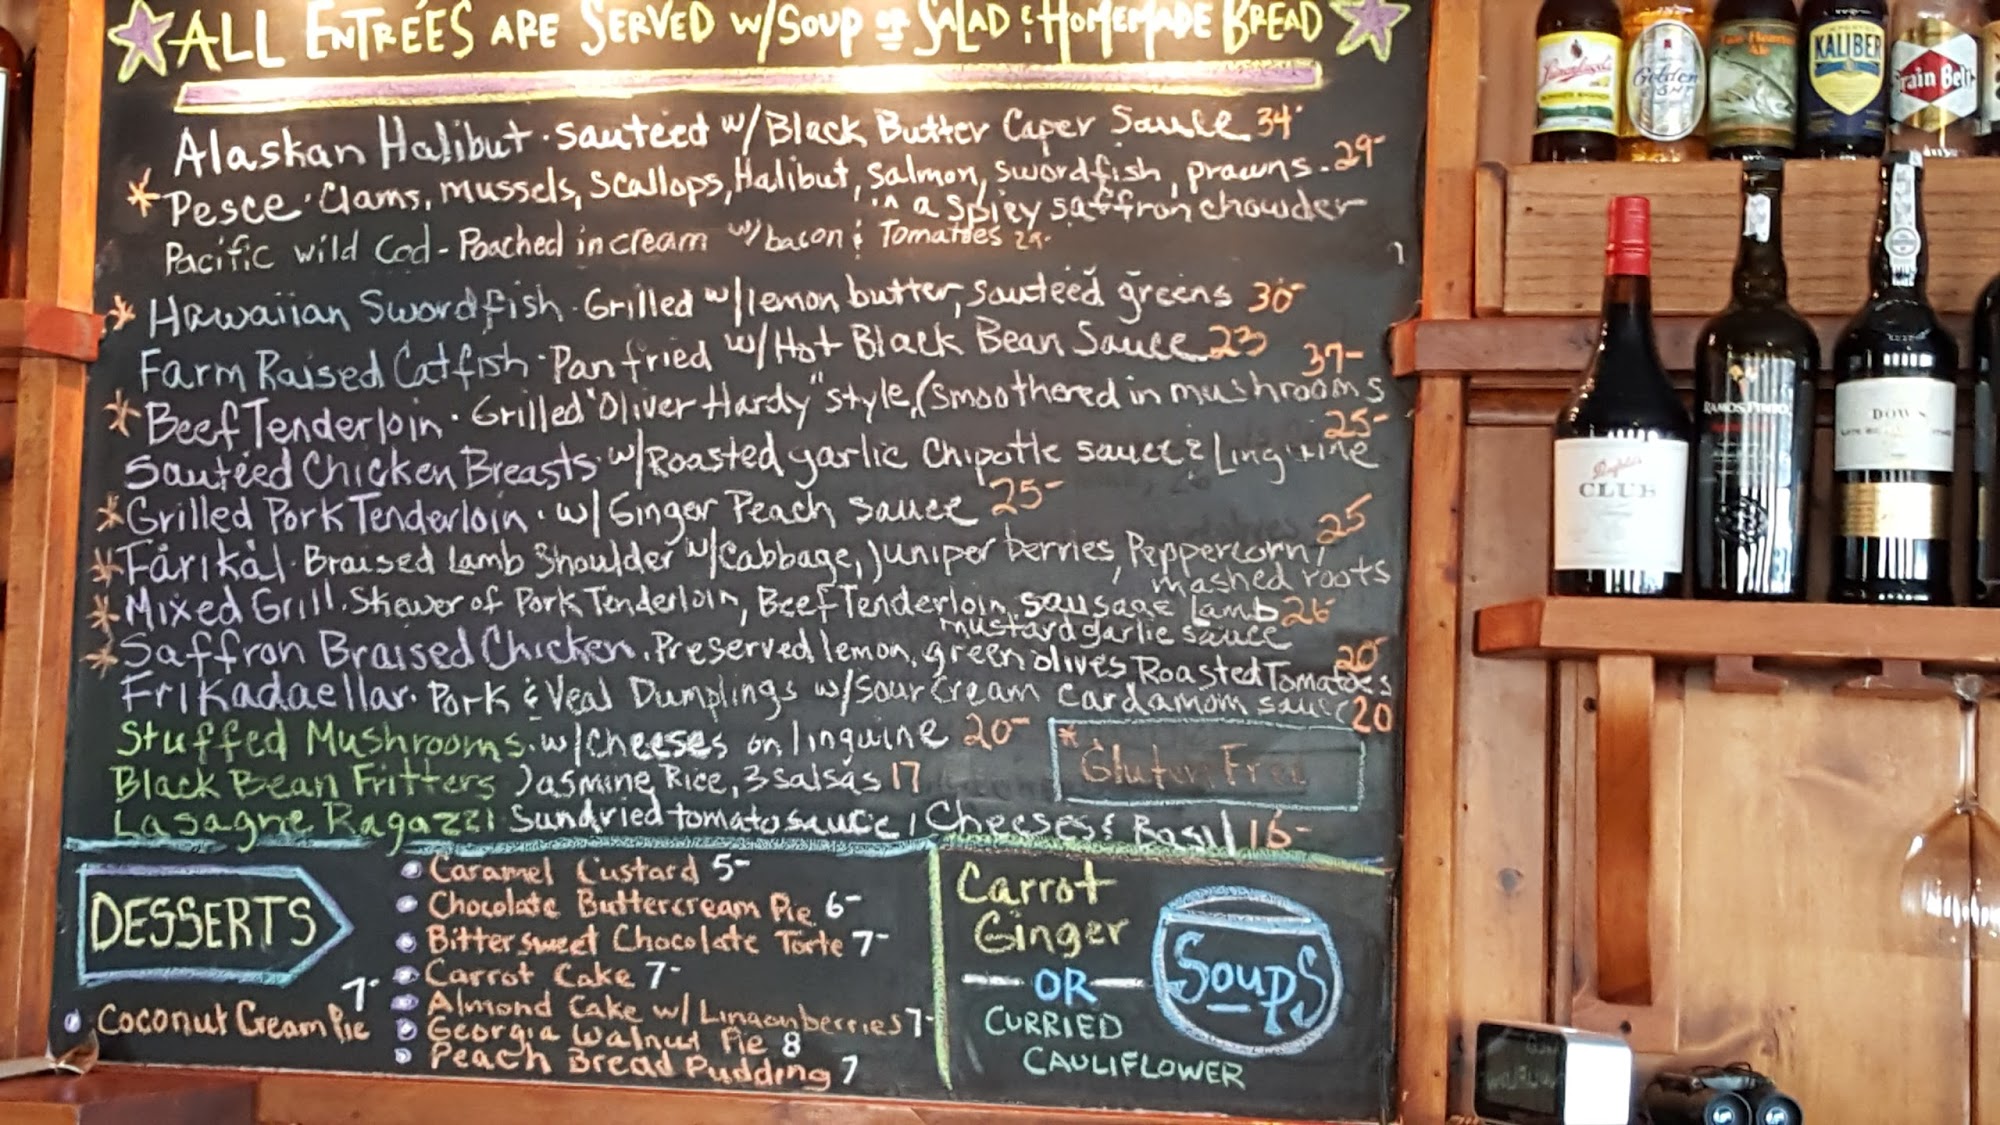 ALL ENTRÉES ARE SERVED W/SOUP or SALAD & HOMEMADE BREAD
Alaskan Halibut · sautéed w/Black Butter Caper Sauce 34-
* Pesce · Clams, mussels, scallops, Halibut, salmon, swordfish, prawns - 29-
in a spicy saffron chowder
Pacific wild Cod - Poached in cream w/bacon & Tomatoes
* Hawaiian Swordfish · Grilled w/lemon butter, sautéed greens 30-
Farm Raised Catfish · Pan fried w/Hot Black Bean Sauce 23
37-
* Beef Tenderloin · Grilled "Oliver Hardy" style, (smoothered in mushrooms
25-
Sautéed Chicken Breasts · w/Roasted garlic Chipotle sauce & Linguine
* Grilled Pork Tenderloin · w/Ginger Peach sauce 25-
25
* Fårikål · Braised Lamb Shoulder w/Cabbage, juniper berries, Peppercorn,
mashed roots
* Mixed Grill · Skewer of Pork Tenderloin, Beef Tenderloin, sausage Lamb 26-
mustard garlic sauce
* Saffron Braised Chicken · Preserved lemon, green olives Roasted Tomatoes 20-
Frikadaellar · Pork & Veal Dumplings w/Sour Cream Cardamom sauce 20
Stuffed Mushrooms · w/cheeses on linguine 20-
* Gluten Free
Black Bean Fritters Jasmine Rice, 3 salsas 17
Lasagne Ragazzi Sundried tomato sauce, Cheeses & Basil 16-
DESSERTS
Caramel Custard 5-
Chocolate Buttercream Pie 6-
Bittersweet Chocolate Torte 7-
Carrot Cake 7-
Almond Cake w/Lingonberries 7-
Georgia Walnut Pie 8
Peach Bread Pudding 7
7-
Coconut Cream Pie
Carrot
Ginger
OR
CURRIED
CAULIFLOWER
Soups
Leinenkugel's
Golden
Ale
KALIBER
Grain Belt
CLUB
RAMOS PINTO
DOW'S